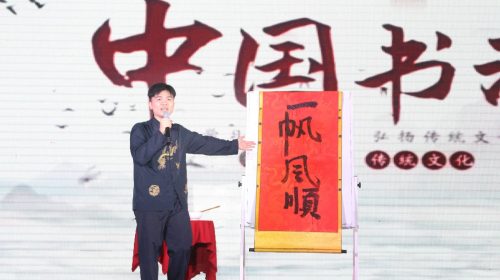 中国书
弘扬传统文
传统文化
一帆风順